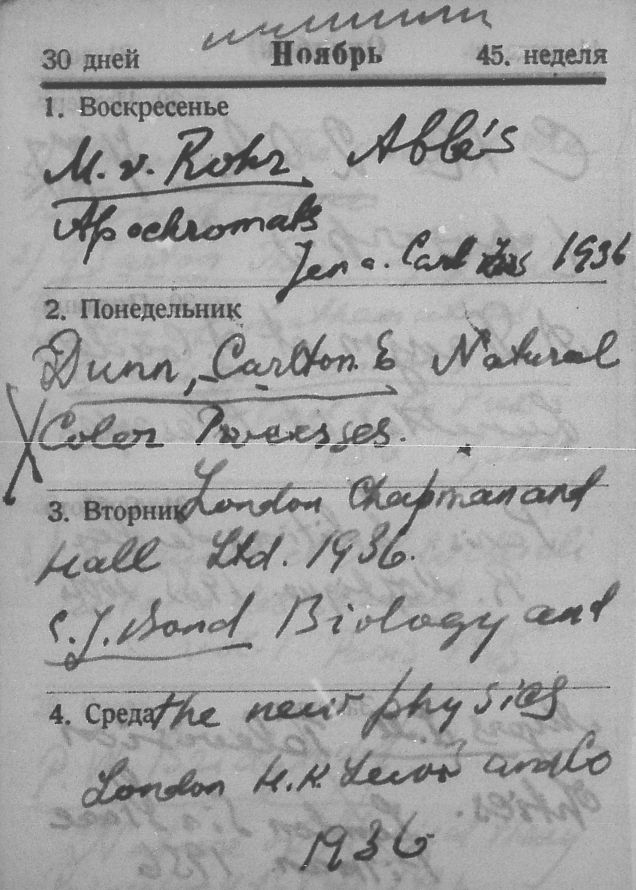 30 дней Ноябрь 45. неделя
1. Воскресенье
M. v. Rohr Abbe's
Apochromats
Jena. Carl Zeiss 1936
2. Понедельник
Dunn, Carlton E Natural
Color Processes.
3. Вторник London Chapman and
Hall Ltd. 1936.
C. J. Bond Biology and
4. Среда the new physics
London H. K. Lewis and Co
1936